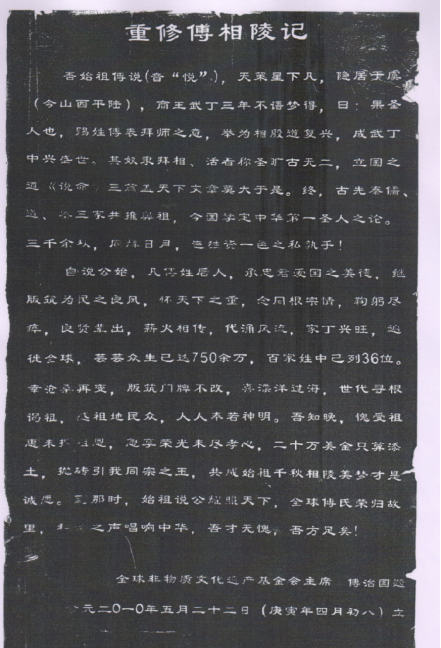 重修傅相陵记
吾始祖傅说(音“悦”),天策星下凡,隐居于虞
(今山西平陆),商王武丁三年不语梦得,曰:果圣
人也,赐姓傅表拜师之意,举为相殷道复兴,成武丁
中兴盛世。其奴隶拜相、活着称圣旷古无二,立国之
道《说命》三篇孟天下文章莫大于是。终,古先秦儒、
道、三家共推鼻祖,今国学定中华第一圣人之论。
三千余秋,日月,岂姓资一邑之私执乎!
自说公始,凡傅姓后人,承忠君爱国之美德,继
版筑为民之良风,怀天下之重,念同根宗情,鞠躬尽
瘁,良贤辈出,薪火相传,代涌风流,家丁兴旺,遍
徙全球,芸芸众生已达750余万,百家姓中已列36位。
幸沧桑再变,版筑门牌不改,喜漂洋过海,世代寻根
谒祖,祖地民众,人人奉若神明。吾知晚,愧受祖
惠未报祖恩,愈享荣光未尽孝心,二十万美金只算添
土,抛砖引我同宗之玉,共成始祖千秋相陵美梦才是
诚愿。到那时,始祖说公耀照天下,全球傅氏荣归故
里,之声唱响中华,吾才无愧,吾方足矣!
全球非物质文化遗产基金会主席 傅治国
元二〇一〇年五月二十二日(庚寅年四月初八)立